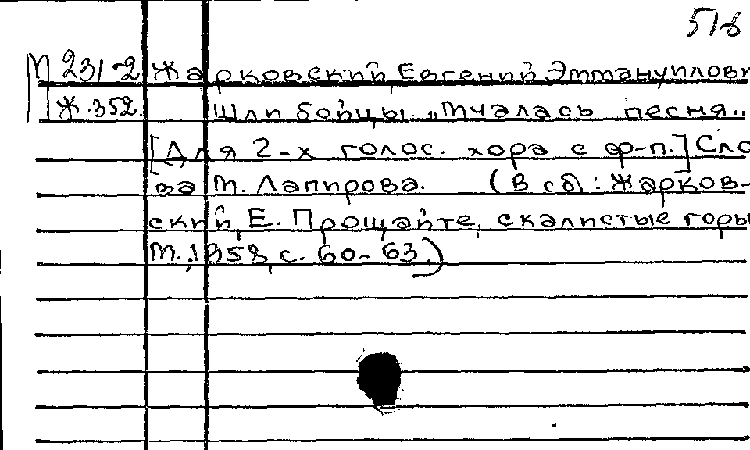 51б
М 231-2 Жарковский, Евгений Эммануилови
Ж.352 Шли бойцы. „Мчалась песня„.
[Для 2-х голос. хора с ф-п.] Сло
ва М. Лапирова. (В сб: Жарков-
ский, Е. Прощайте, скалистые горы
М., 1958, с. 60-63.)